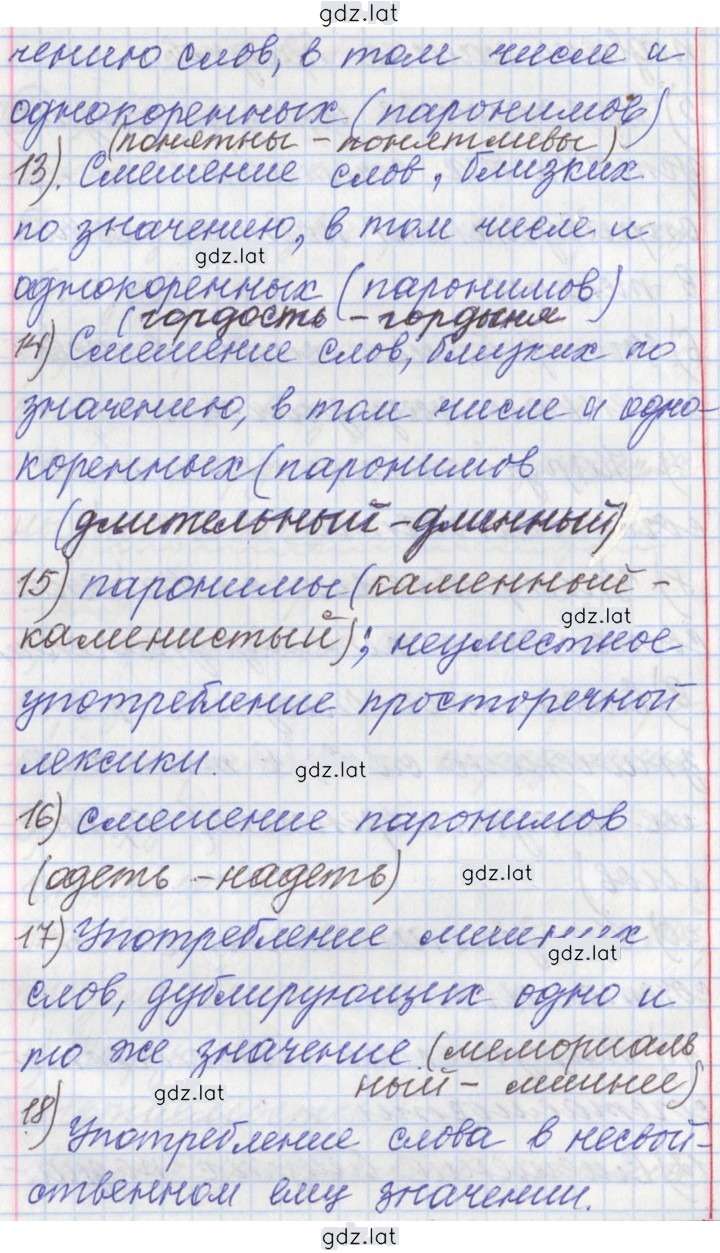 gdz.lat
чению слов, в том числе и
однокоренных (паронимов)
(понятны - понятливы)
13). Смешение слов, близких
по значению, в том числе и
gdz.lat
однокоренных (паронимов)
(гордость - гордыня
14) Смешение слов, близких по
значению, в том числе и одно-
коренных (паронимов
(длительный - длинный)
15) паронимы (каменный -
gdz.lat
каменистый); неуместное
употребление просторечной
лексики.
gdz.lat
16) смешение паронимов
(одеть - надеть)
gdz.lat
17) Употребление лишних
gdz.lat
слов, дублирующих одно и
то же значение (мемориаль
ный - лишнее)
gdz.lat
18)
Употребление слова в несвой-
ственном ему значении.
gdz.lat